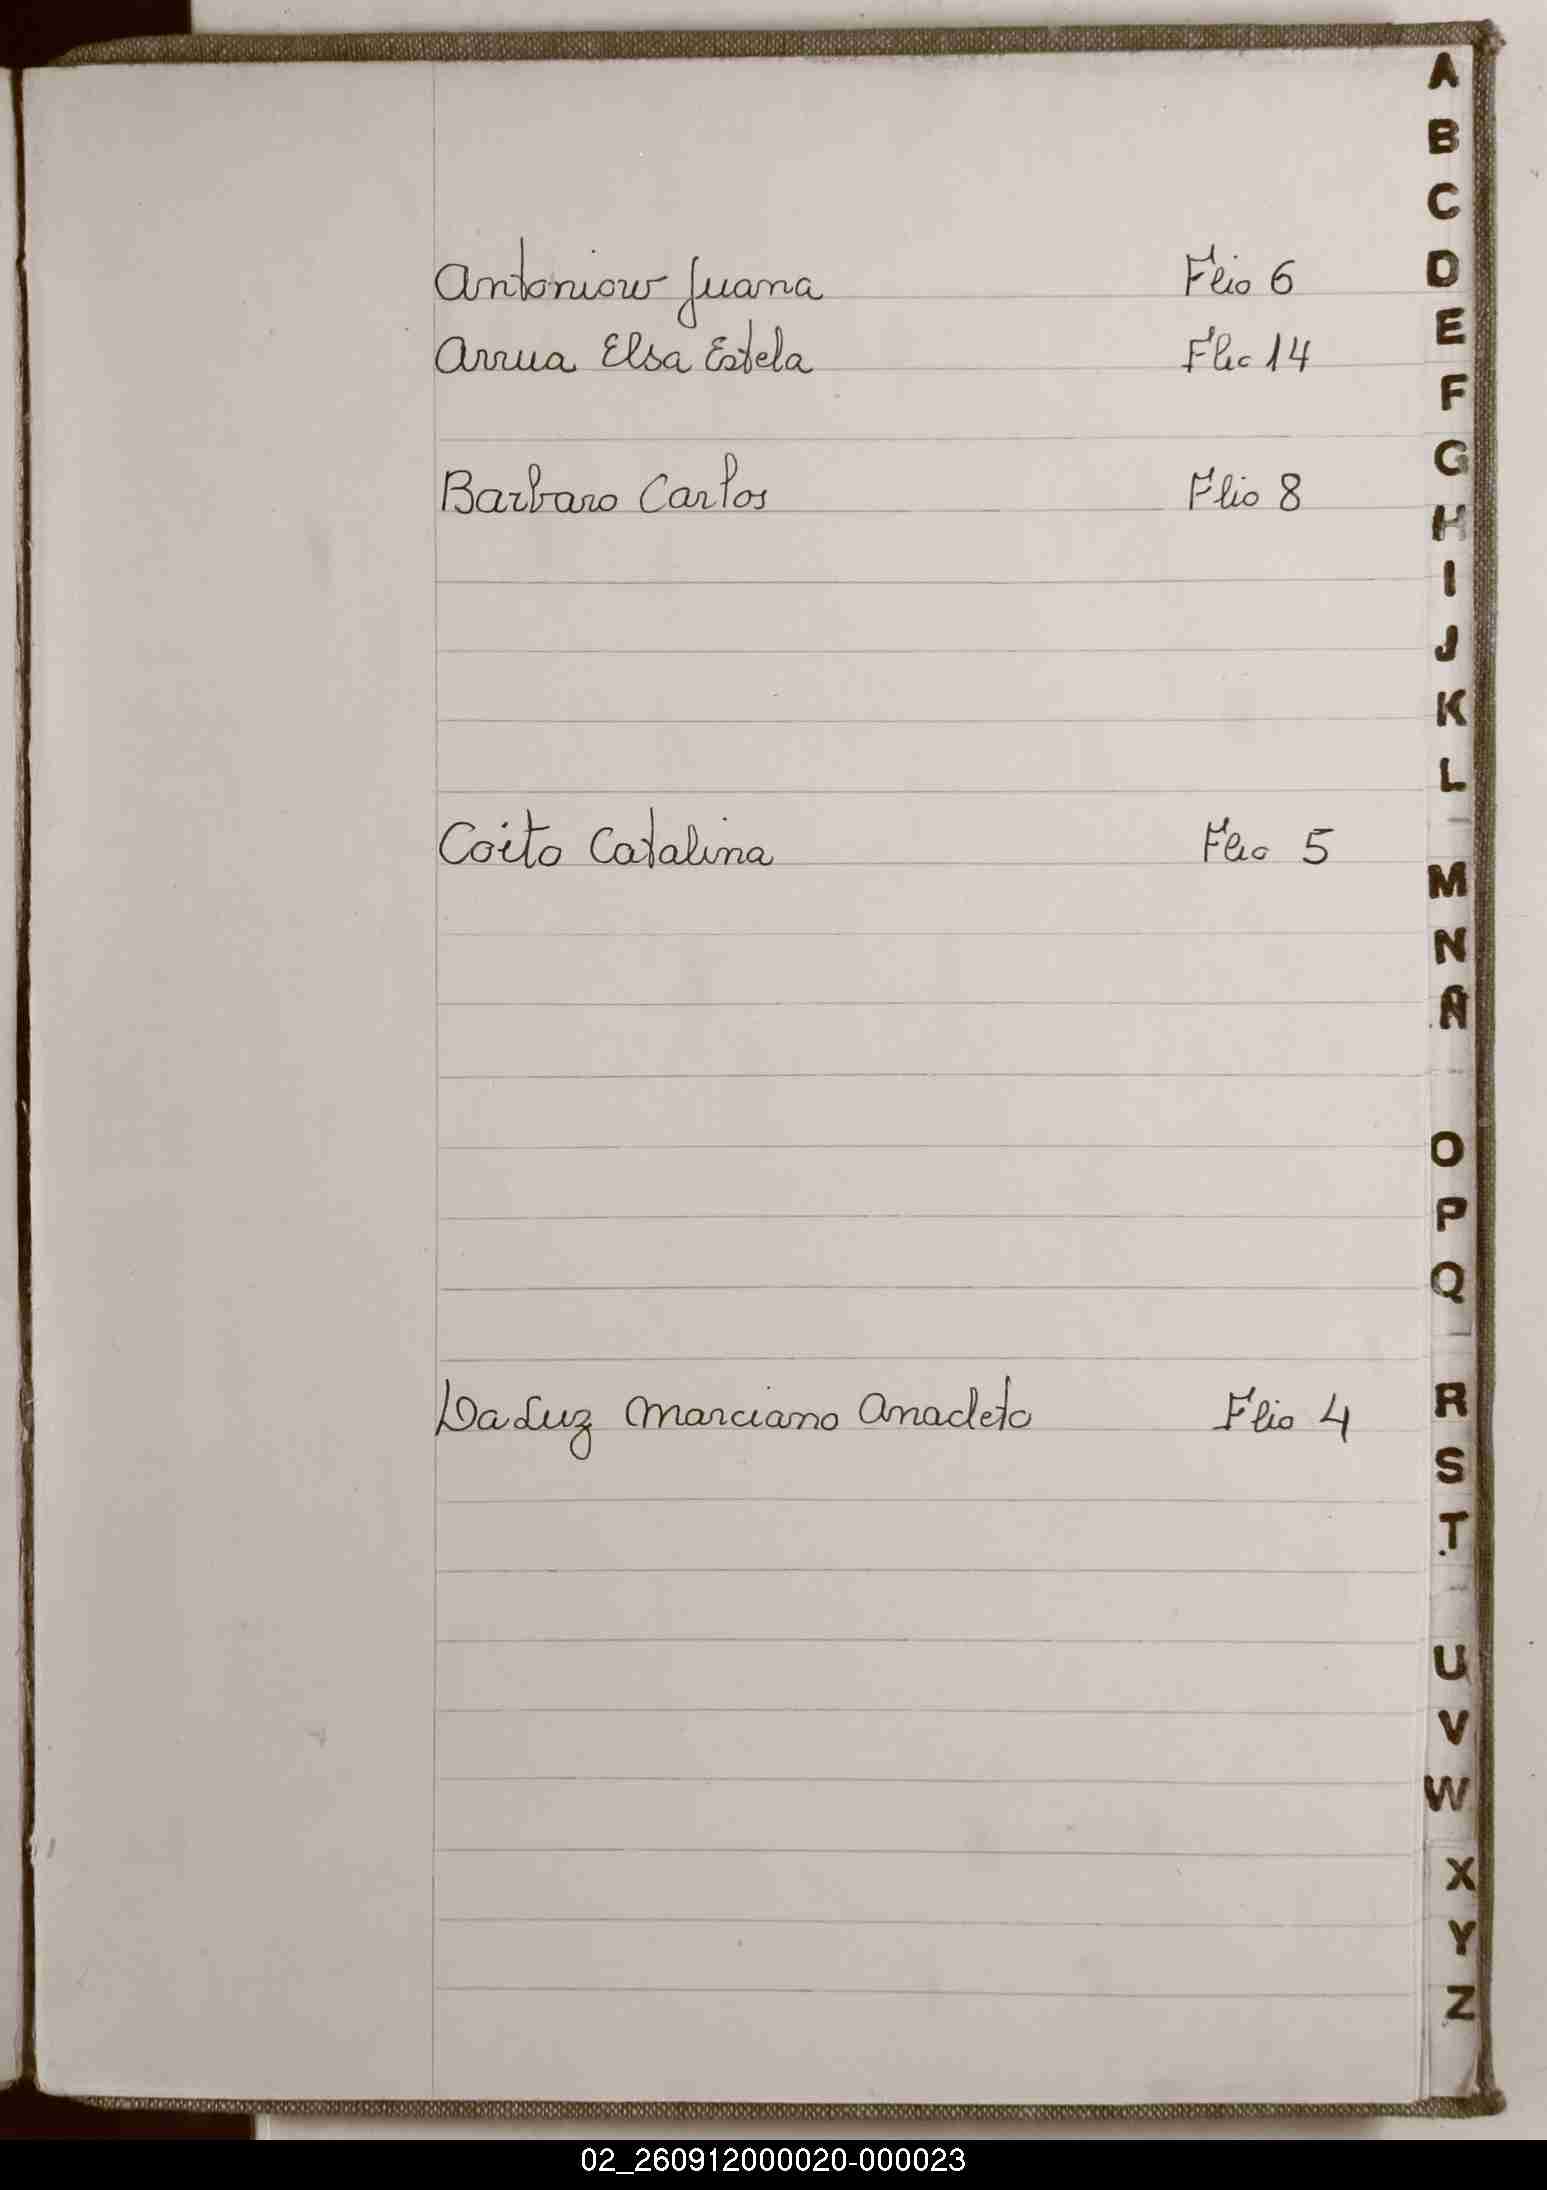 Antoniow Juana Flio 6
Arrua Elsa Estela Flio 14
Barbaro Carlos Flio 8
Coito Catalina Flio 5
Da Luz Marciano Anacleto Flio 4
A
B
C
D
E
F
G
H
I
J
K
L
M
N
Ñ
O
P
Q
R
S
T
U
V
W
X
Y
Z
02_260912000020-000023